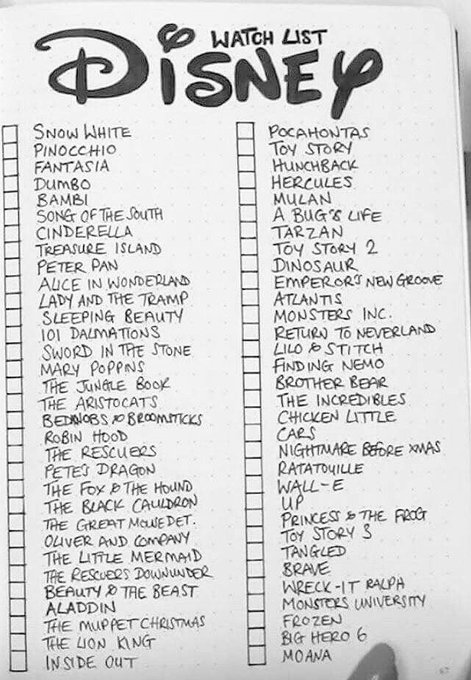 WATCH LIST
DISNEY
SNOW WHITE
PINOCCHIO
FANTASIA
DUMBO
BAMBI
SONG OF THE SOUTH
CINDERELLA
TREASURE ISLAND
PETER PAN
ALICE IN WONDERLAND
LADY AND THE TRAMP
SLEEPING BEAUTY
101 DALMATIONS
SWORD IN THE STONE
MARY POPPINS
THE JUNGLE BOOK
THE ARISTOCATS
BEDKNOBS & BROOMSTICKS
ROBIN HOOD
THE RESCUERS
PETE'S DRAGON
THE FOX & THE HOUND
THE BLACK CAULDRON
THE GREAT MOUSE DET.
OLIVER AND COMPANY
THE LITTLE MERMAID
THE RESCUERS DOWNUNDER
BEAUTY & THE BEAST
ALADDIN
THE MUPPET CHRISTMAS
THE LION KING
INSIDE OUT
POCAHONTAS
TOY STORY
HUNCHBACK
HERCULES
MULAN
A BUG'S LIFE
TARZAN
TOY STORY 2
DINOSAUR
EMPEROR'S NEW GROOVE
ATLANTIS
MONSTERS INC.
RETURN TO NEVERLAND
LILO & STITCH
FINDING NEMO
BROTHER BEAR
THE INCREDIBLES
CHICKEN LITTLE
CARS
NIGHTMARE BEFORE XMAS
RATATOUILLE
WALL-E
UP
PRINCESS & THE FROG
TOY STORY 3
TANGLED
BRAVE
WRECK-IT RALPH
MONSTERS UNIVERSITY
FROZEN
BIG HERO 6
MOANA